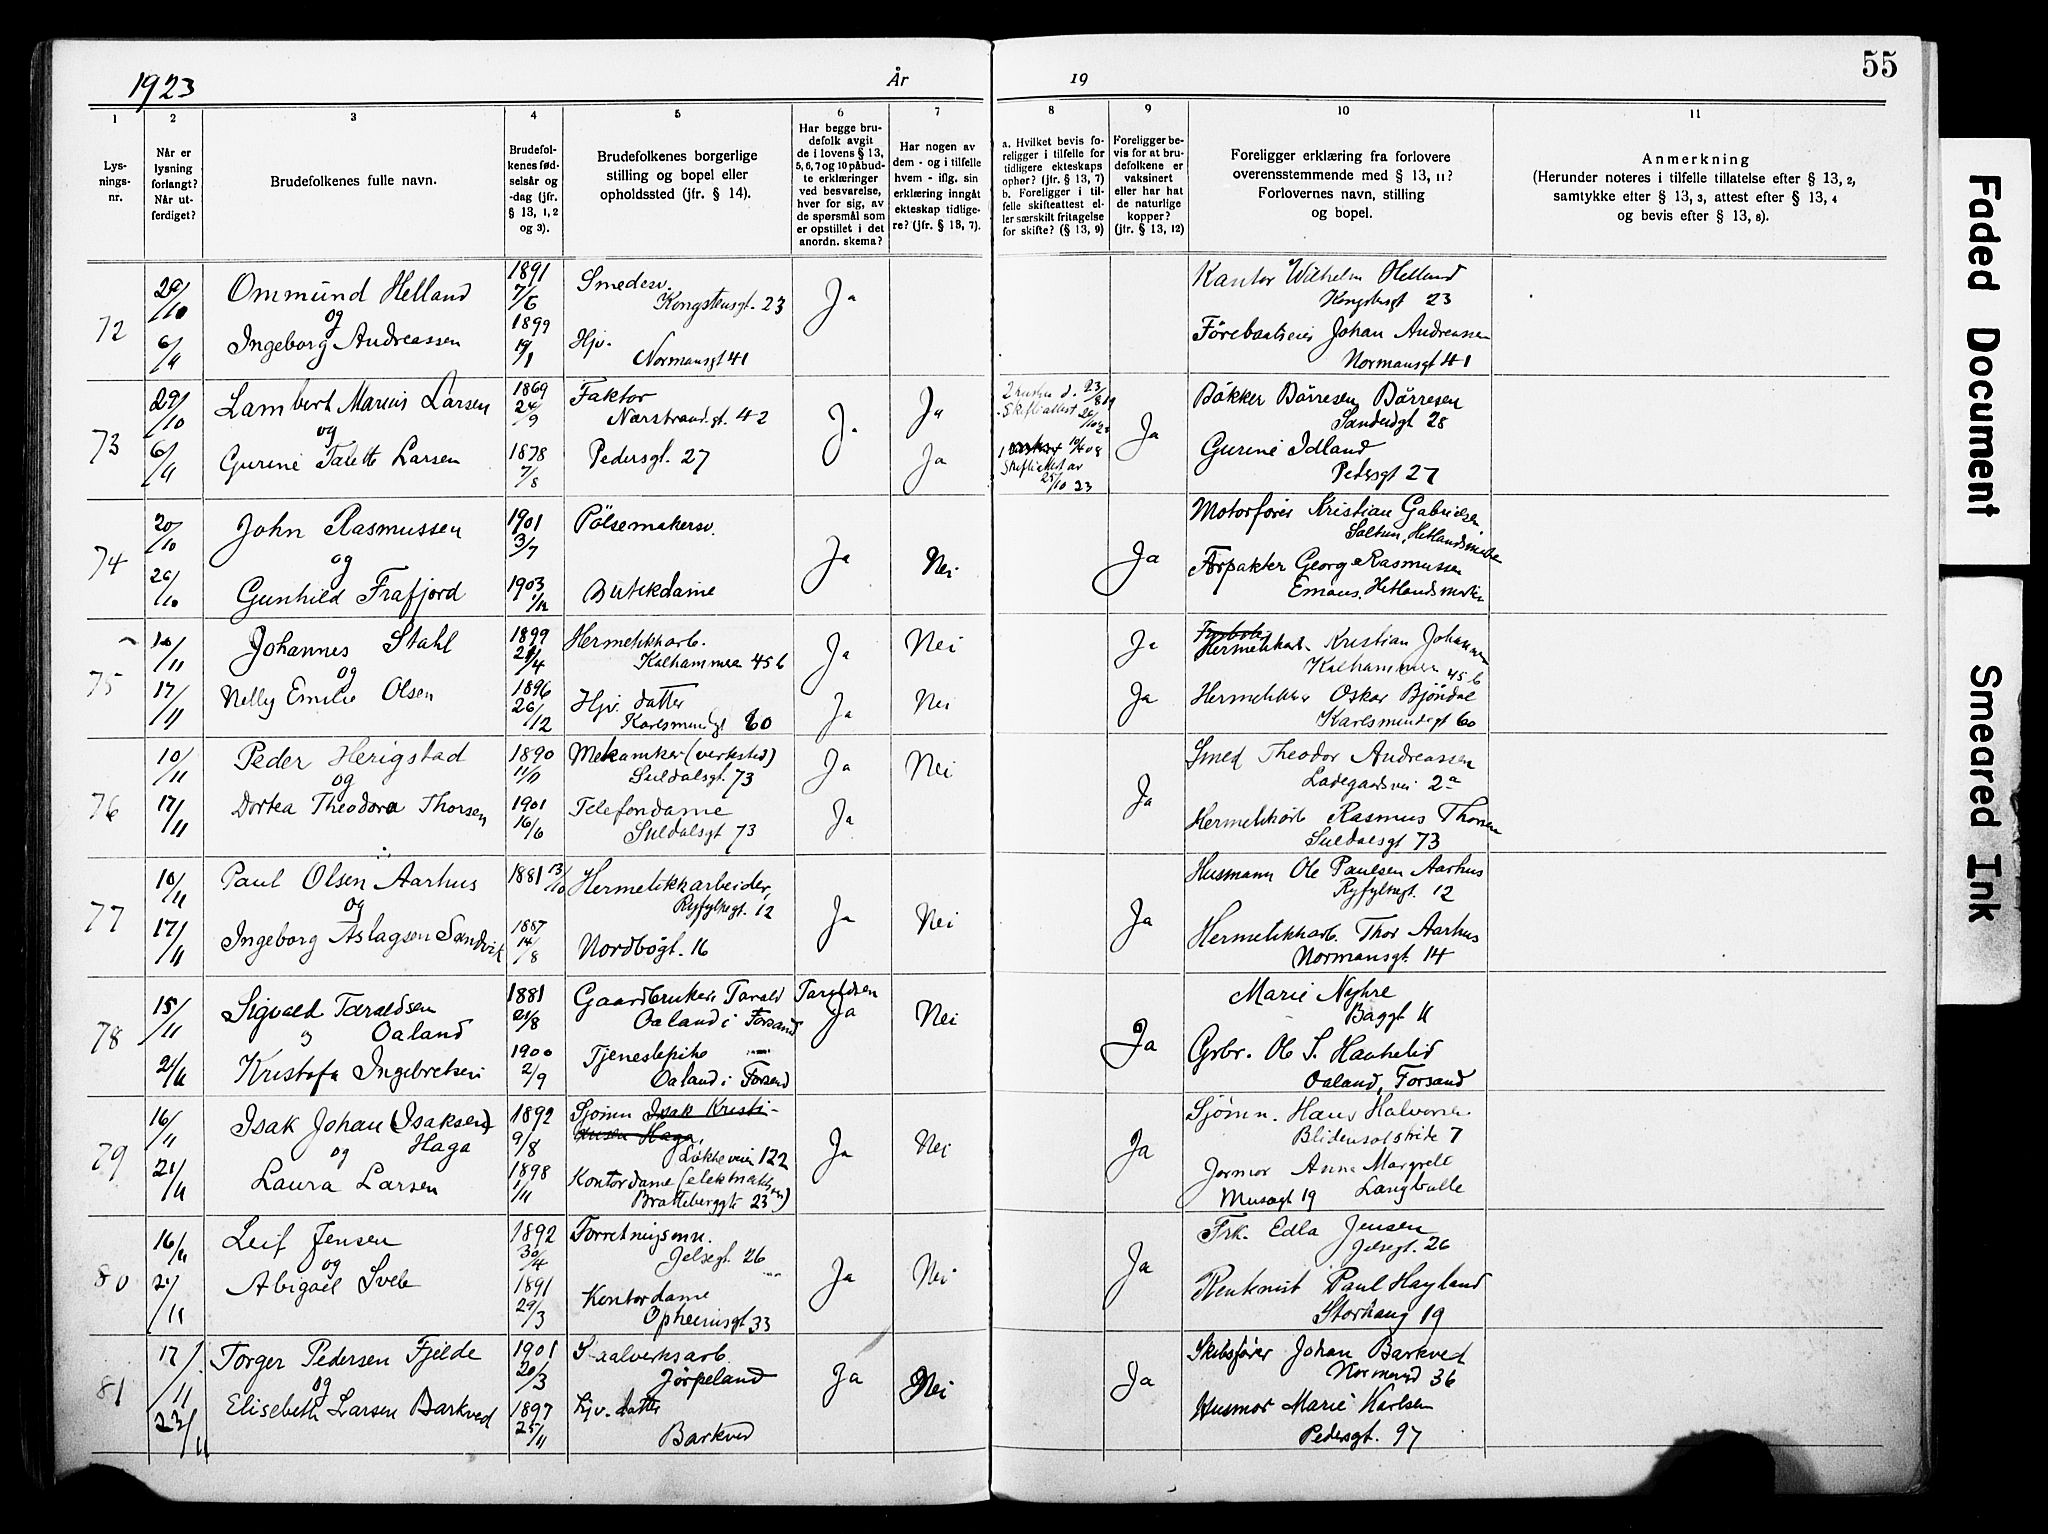 1923
År
19
55
1
2
3
4
5
6
7
8
9
10
11
Lys-
nings-
nr.
Når er
lysning
forlangt?
Når ut-
ferdiget?
Brudefolkenes fulle navn.
Brudefol-
kenes fød-
selsår og
-dag (jfr.
§ 13, 1, 2
og 3).
Brudefolkenes borgerlige
stilling og bopel eller
opholdssted (jfr. § 14).
Har begge bru-
defolk avgit
de i lovens § 13,
5, 6, 7 og 10 påbud-
te erklæringer
ved besvarelse,
hver for sig, av
de spørsmål som
er opstillet i det
anordn. skema?
Har nogen av
dem - og i tilfelle
hvem - iflg. sin
erklæring inngåt
ekteskap tidlige-
re? (jfr. § 13, 7).
a. Hvilket bevis fo-
religger i tilfelle for
tidligere ekteskaps
ophør? (jfr. § 13, 7)
b. Foreligger i til-
felle skifteattest el-
ler særskilt fritagelse
for skifte? (§ 13, 9)
Foreligger be-
vis for at bru-
defolkene er
vaksinert
eller har hat
de naturlige
kopper?
(jfr. § 13, 12)
Foreligger erklæring fra forlovere
overensstemmende med § 13, 11?
Forlovernes navn, stilling
og bopel.
Anmerkning
(Herunder noteres i tilfelle tillatelse efter § 13, 2,
samtykke efter § 13, 3, attest efter § 13, 4
og bevis efter § 13, 8).
72
29/10
6/11
Ommund Helland
og
Ingeborg Andreassen
1891
7/6
1899
19/1
Smedesv.
Kongstensgt. 23
Hjv.
Normansgt 41
Ja
Kantor Wilhelm Helland
Kongstensgt 23
Johan Andreassen
Normansgt 41
73
29/10
6/11
Lambert Marius Larsen
og
Gurine Talette Larsen
1869
24/9
1878
7/8
Faktor
Nærstrandgt. 42
Pedersgt. 27
Ja
Ja
Ja
Skifteattest
Skifteattest av
25/10 23
Ja
Bøkker Børresen Børresen
Sandeidgt 28
Gurine Idland
Pedersgt 27
74
20/10
26/10
John Rasmussen
og
Gunhild Frafjord
1901
3/7
1903
1/12
Pølsemakersv.
Butikdame
Ja
Nei
Ja
Motorfører Kristian Gabrielsen
Saltun, Hetlandsmarke
Forpakter Georg Rasmussen
Emaus, Hetlandsmarken
75
10/11
17/11
Johannes Stahl
og
Nelly Emilie Olsen
1899
21/4
1896
26/12
Hermetikkarb.
Kalhammer 45 b
Hjv. datter
Karlsmindegt 60
Ja
Ja
Nei
Nei
Ja
Ja
Hermetikkarb. Kristian Johannesen
Kalhammer 45 b
Hermetikker Oskar Bjøndal
Karlsmindegt 60
76
10/11
17/11
Peder Herigstad
og
Dortea Theodora Thorsen
1890
11/7
1901
16/6
Mekaniker (verksted)
Suldalsgt. 73
Telefondame
Suldalsgt 73
Ja
Ja
Nei
Ja
Smed Theodor Andreassen
Ladegaardsvei 2a
Hermetikarb Rasmus Thorsen
Suldalsgt 73
77
10/11
17/11
Paul Olsen Aarhus
og
Ingeborg Aslagsen Sandvik
1881 13/10
1887
14/8
Hermetikkarbeider,
Ryfylkegt. 12
Nordbøgt. 16
Ja
Nei
Ja
Husmann Ole Paulsen Aarhus
Ryfylkegt. 12
Hermetikkarb. Thor Aarhus
Normansgt. 14
78
15/11
21/11
Sigvald Taraldsen
og Oaland
Kristofa Ingebretsen
1881
21/8
1900
2/9
Gaardbruker Tarald Taraldsen
Oaland i Forsand
Tjenestepike
Oaland i Forsand
Ja
Nei
Ja
Marie Nyhre
Baggt 11
Grbr. Ole S. Haukelid
Oaland, Forsand
79
16/11
21/11
Isak Johan (Isaksen)
og Haga
Laura Larsen
1892
9/8
1898
1/11
Sjømn Isak Kristi-
ansen Haga,
Løkkeveien 122
Kontordame
Bratteberggt 23
Ja
Nei
Ja
Sjømn. Hans Halvorsen
Blidensolstrede 7
Jormor Anna Margrete
Musegt 19 Langballe
80
16/11
21/11
Leif Jensen
og
Abigael Svele
1892
30/4
1891
29/3
Forretningsmn.
Jelsegt. 26
Kontordame
Opheimsgt 33
Ja
Nei
Ja
Frk. Edla Jensen
Jelsegt. 26
Renknist Paul Hayland
Storhaug 19
81
17/11
23/11
Torger Pedersen Fjelde
og
Elisebeth Larsen Barkved
1901
20/3
1897
25/11
Staalverksarb.
Jørpeland
Hjv. datter
Barkved
Ja
Nei
Ja
Skibsfører Johan Barkved
36
Husmor Marie Karlsen
Pedersgt. 97
Faded Document
Smeared Ink